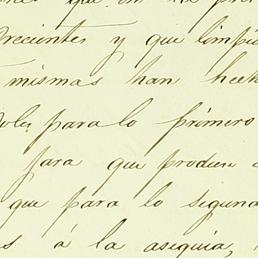 que
crecientes y que limpi
mismas han hech
doles para lo primero
para que produce
que para lo segund
s á la asequia,